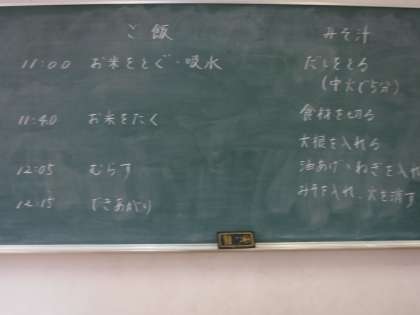 ご飯
11:00 お米をとぐ・吸水
11:40 お米をたく
12:05 むらす
12:15 できあがり
みそ汁
だしをとる
(中火で5分)
食材を切る
大根を入れる
油あげ、ねぎを入れ
みそを入れ、火を消す